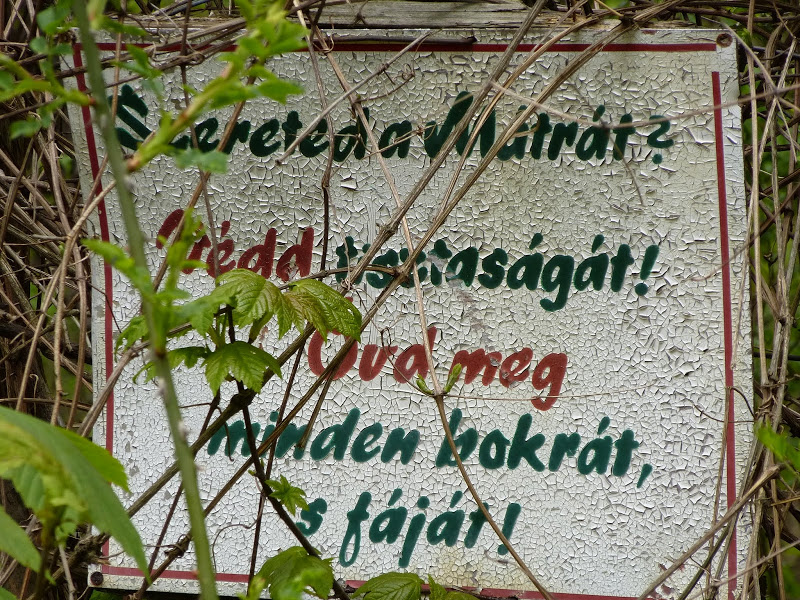 Szereted a Mátrát?
Védd tisztaságát!
Óvd meg
minden bokrát,
s fáját!